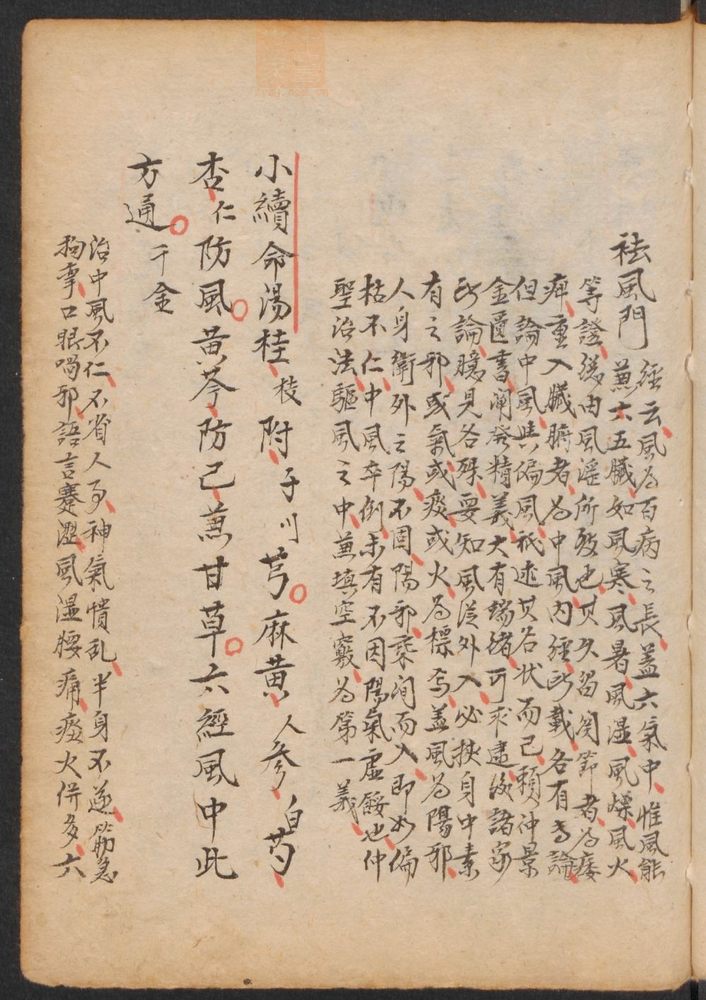 祛風門
經云風為百病之長蓋六氣中惟風能
兼六五臟如風寒風暑風湿風燥風火
等證緣由風淫所致也其久留関節者為痿
痺重入臟腑者為中風内經所載各有專論
但論中風與偏風秪述其名状而已頼仲景
金匱書闡發精義大有端緒可求逮後諸家
所論臆見各殊要知風從外入必挟身中素
有之邪或氣或痰或火為標焉蓋風為陽邪
人身衛外之陽不固陽邪乘间而入即如偏
枯不仁中風卒倒未有不因陽氣虚餒也仲
聖治法驅風之中兼填空竅為第一義
小續命湯桂枝附子川芎麻黄人参白芍
杏仁防風黄芩防己兼甘草六經風中此
方通千金
治中風不仁不省人事神氣憒乱半身不遂筋急
拘挛口眼喎邪語言蹇澀風湿腰痛痰火併多六